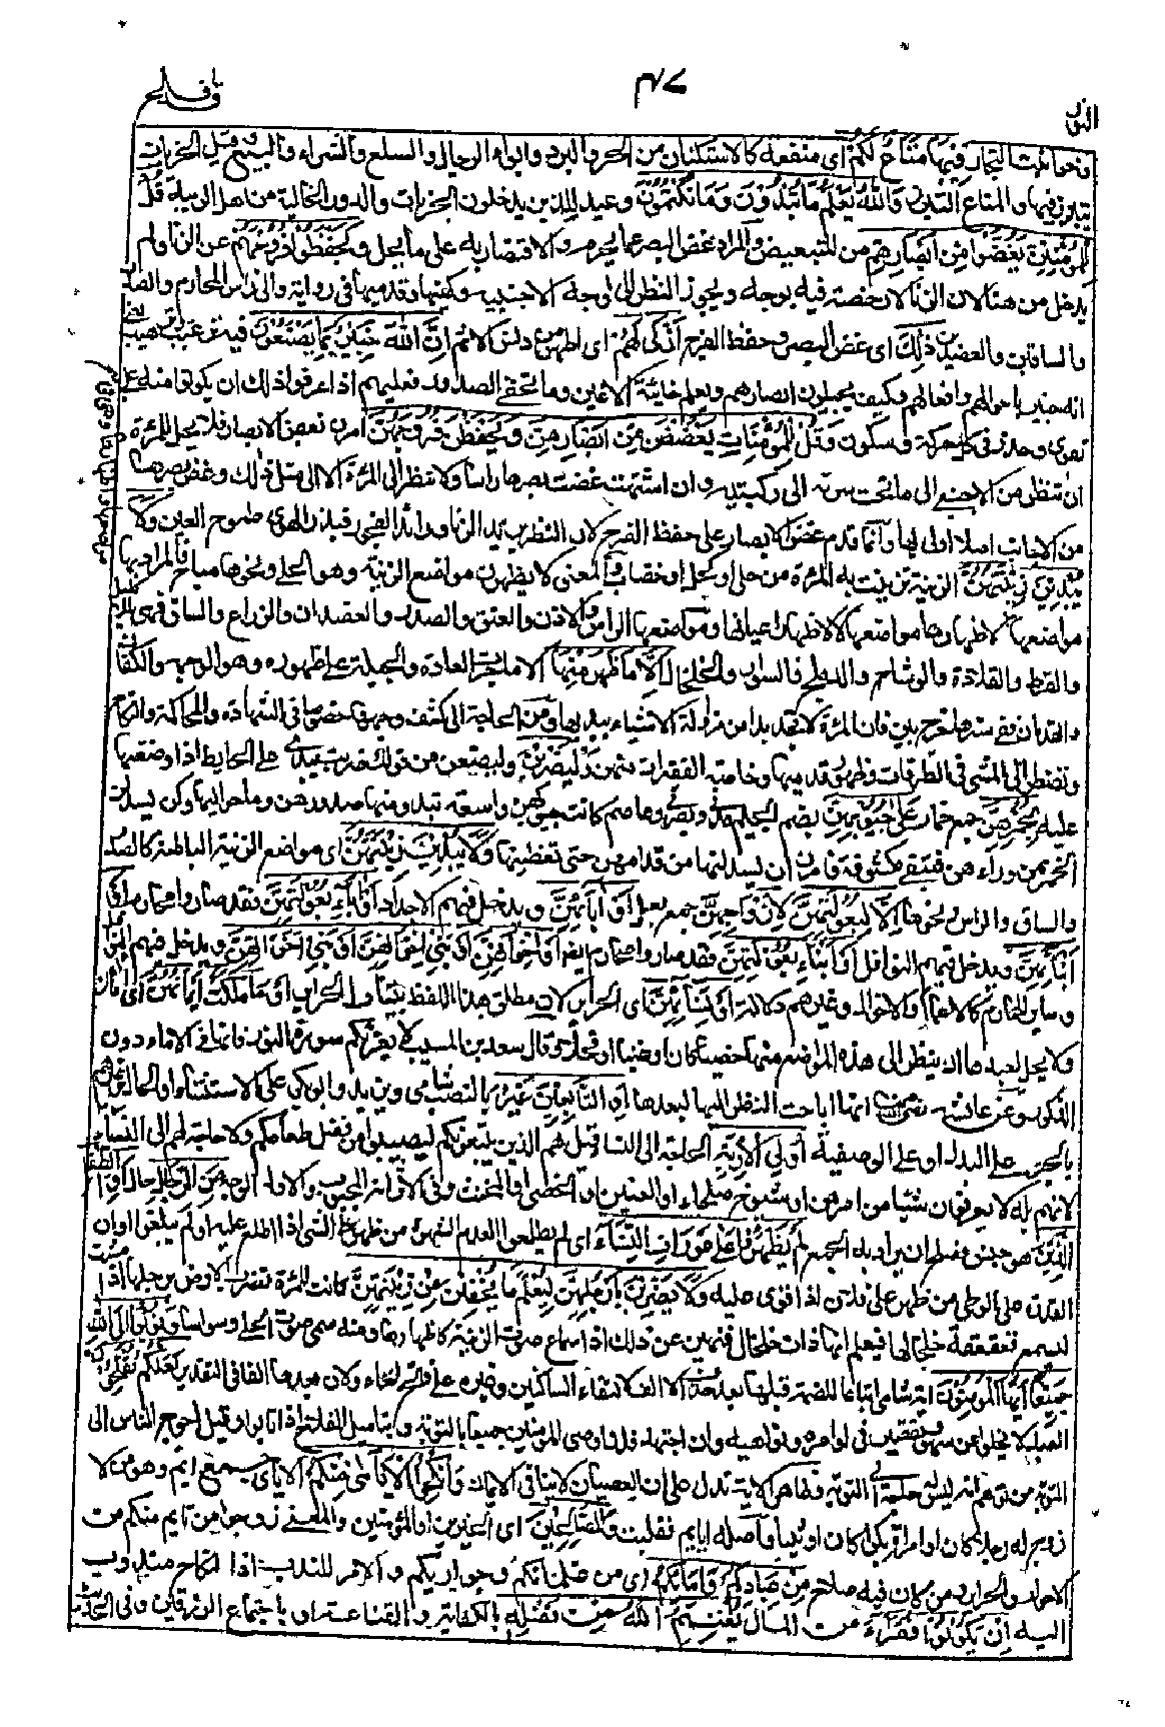 النور
٣٧
قد افلح
وحوانيت التجار فيها متاع لكم اى منفعة كالاستكنان من الحر والبرد وايواء الرحال والسلع والشراء والبيع وقيل الخربات
يتبرز فيها والمتاع التبرز والله يعلم ما تبدون وما تكتمون وعيد للذين يدخلون الخربات والدور الخالية من اهل الريبة قل
للمؤمنين يغضوا من ابصارهم من للتبعيض والمراد غض البصر عما يحرم والاقتصار به على ما يحل ويحفظوا فروجهم عن الزنا ولم
يدخل من هنا لان الزنا لا رخصة فيه بوجه ويجوز النظر الى وجه الاجنبية وكفيها وقدميها فى رواية والى راس المحارم والصدر
والساقين والعضدين ذلك اى غض البصر وحفظ الفرج ازكى لهم اى اطهر من دنس الاثم ان الله خبير بما يصنعون فيه ترغيب وترهيب
انه خبير باحوالهم وافعالهم وكيف يجيلون ابصارهم ويعلم خائنة الاعين وما تخفى الصدور فعليهم اذا عرفوا ذلك ان يكونوا منه على
تقوى وحذر فى كل حركة وسكون وقل للمؤمنات يغضضن من ابصارهن ويحفظن فروجهن امرن بغض الابصار فلا يحل للمرأة
ان تنظر من الاجنبى الى ما تحت سرته الى ركبتيه وان اشتهت غضت بصرها راسا ولا تنظر الى المرأة الا الى مثل ذلك وغض بصرها
من الاجانب اصلا اولى بها وانما قدم غض الابصار على حفظ الفرج لان النظر بريد الزنا ورائد الفجور فبذر الهوى طموح العين ولا
يبدين زينتهن الزينة ما تزينت به المرأة من حلى او كحل او خضاب والمعنى لا يظهرن مواضع الزينة وهو الحلى ونحوها مباح فالمراد بها
مواضعها اظهارها مواضعها لا لاظهار اعيانها ومواضعها الراس والاذن والعنق والصدر والعضدان والذراع والساق فهى للاكليل
والقرط والقلادة والوشاح والدملج والسوار والخلخال الا ما ظهر منها الا ما جرت العادة والجبلة على ظهوره وهو الوجه والكفان
والقدمان ففى سترها حرج بين فان المرأة لا تجد بدا من مزاولة الاشياء بيديها ومن الحاجة الى كشف وجهها خصوصا فى الشهادة والمحاكمة والنكاح
وتضطر الى المشى فى الطرقات وظهور قدميها وخاصة الفقيرات منهن وليضربن وليضعن من قولك ضربت بيدى على الحايط اذا وضعتها
عليه بخمرهن جمع خمار على جيوبهن بضم الجيم مدنى وبصرى وعاصم كانت جيوبهن واسعة تبدو منها صدورهن وما حواليها وكن يسدلن
الخمر من وراءهن فتبقى مكشوفة فامرن ان يسدلنها من قدامهن حتى تغطيها ولا يبدين زينتهن اى مواضع الزينة الباطنة كالصدر
والساق والراس ونحوها الا لبعولتهن لازواجهن جمع بعل او آبائهن ويدخل فيهم الاجداد او آباء بعولتهن فقد صاروا محارم او
ابنائهن ويدخل فيهم النوافل او ابناء بعولتهن فقد صاروا محارم ايضا او اخوانهن او بنى اخوانهن او بنى اخواتهن ويدخل فيهم النوافل
وساير المحارم كالاعمام والاخوال وغيرهم دلالة او نسائهن اى الحرائر لان مطلق هذا اللفظ يتناول الحرائر او ما ملكت ايمانهن اى امائهن
ولا يحل لعبدها ان ينظر الى هذه المواضع منها خصيا كان او عنينا او فحلا وقال سعيد بن المسيب لا يغرنكم سورة النور فانها فى الاماء دون
الذكور وعن عائشة رضى الله عنها انها اباحت النظر اليها لعبدها او التابعين غير بالنصب شامى ويزيد وابو بكر على الاستثناء او الحال
بالجر على البدل او على الوصفية اولى الاربة الحاجة الى النساء قيل هم الذين يتبعونكم ليصيبوا من فضل طعامكم ولا حاجة لهم الى النساء
لانهم بله لا يعرفون شيئا من امرهن او شيوخ صلحاء او العنين او الخصى او المخنث وفى الاثر انه المجبوب والاول الوجه من الرجال حال او الطفل
الذين هو جنس فصلح ان يراد به الجمع لم يظهروا على عورات النساء اى لم يطلعوا لعدم الشهوة من ظهر على الشئ اذا اطلع عليه او لم يبلغوا اوان
القدرة على الوطى من ظهر على فلان اذا قوى عليه ولا يضربن بارجلهن ليعلم ما يخفين من زينتهن كانت المرأة تضرب الارض برجلها اذا مشت
ليسمع قعقعة خلخالها فيعلم انها ذات خلخال فنهين عن ذلك اذ اسماع صوت الزينة كاظهارها ومنه سمى صوت الحلى وسواسا وتوبوا الى الله
جميعا ايها المؤمنون ايه شامى اتباعا للضمة قبلها بعد حذف الالف لالتقاء الساكنين وغيره على فتح الهاء ولان بعدها الفا فى التقدير لعلكم تفلحون
العبد لا يخلوا عن سهو وتقصير فى اوامره ونواهيه وان اجتهد فلذا وصى المؤمنين جميعا بالتوبة وبتاميل الفلاح اذا تابوا وقيل احوج الناس الى
التوبة من توهم انه ليس له حاجة الى التوبة وظاهر الاية تدل على ان العصيان لا ينافى الايمان وانكحوا الايامى منكم الايامى جمع ايم وهو من لا
زوج له رجلا كان او امرأة بكرا كان او ثيبا واصله ايايم فقلبت والصالحين اى الخيرين او المؤمنين والمعنى زوجوا من تايم منكم من
الاحرار والحرائر ومن كان فيه صلاح من عبادكم وامائكم اى من غلمانكم وجواريكم والامر للندب اذا النكاح مندوب
اليه ان يكونوا فقراء من المال يغنهم الله من فضله بالكفاية والقناعة او باجتماع الرزقين وفى الحديث